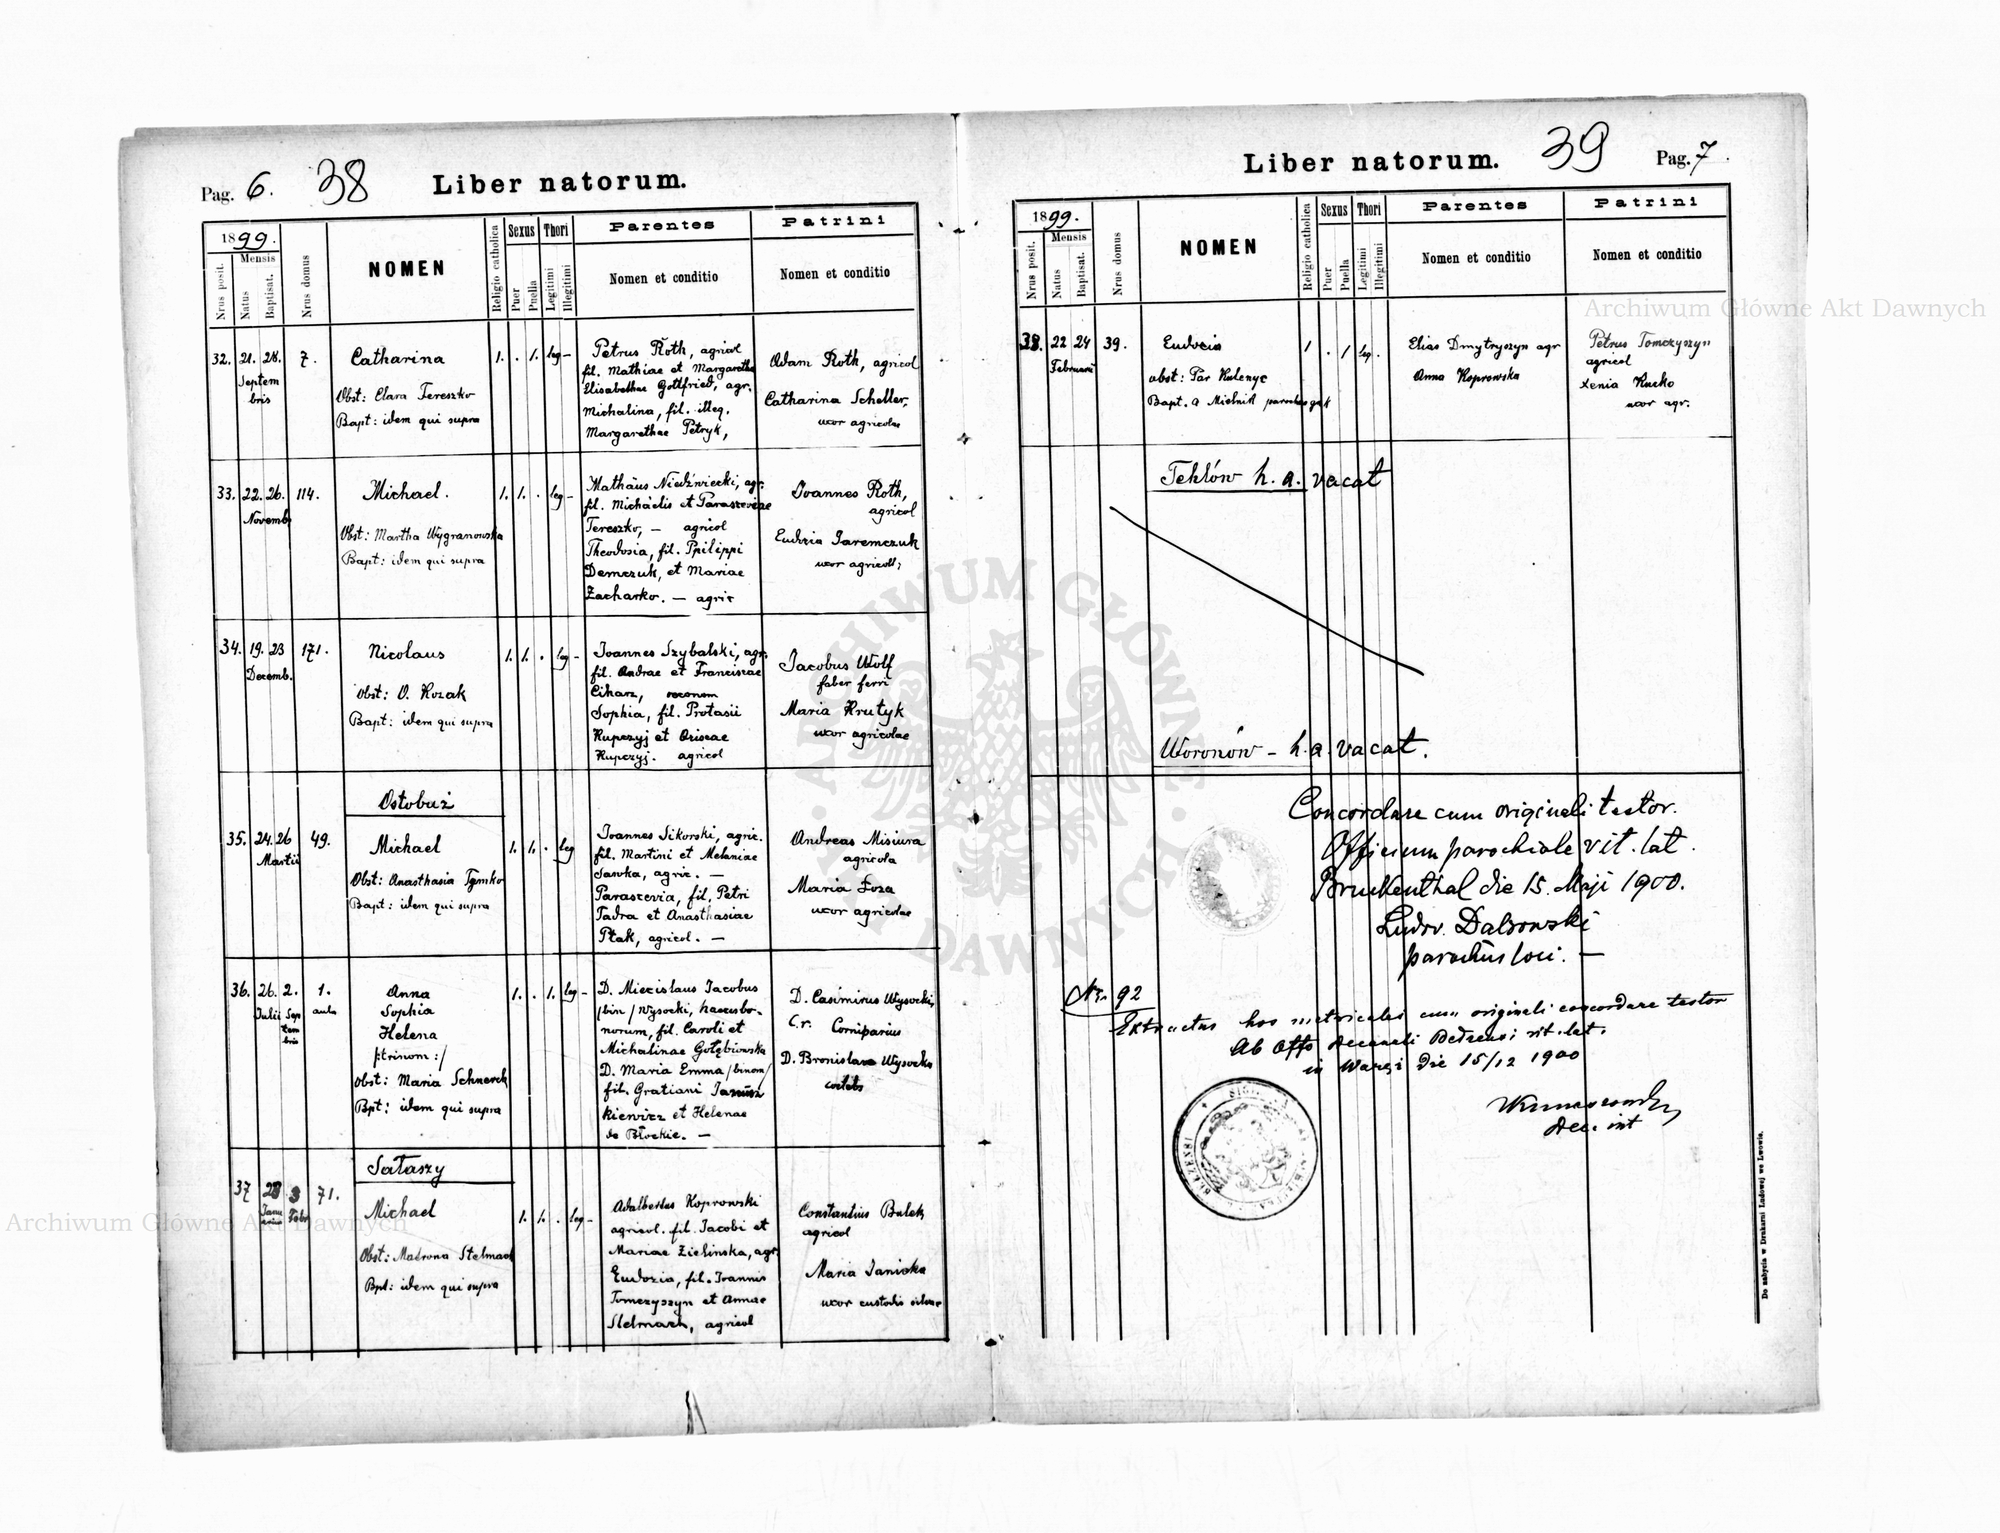 Pag. 6. 38 Liber natorum.
1899.
Nrus posit.
Mensis
Natus
Baptisat.
Nrus domus
NOMEN
Religio catholica
Sexus
Puer
Puella
Thori
Legitimi
Illegitimi
Parentes
Nomen et conditio
Patrini
Nomen et conditio
32. 21. 28. 7. Catharina 1. . 1. leg –
Septem
bris
Obst: Clara Tereszko
Bapt: idem qui supra
Petrus Roth, agricol
fil. Mathiae et Margarethae
Elisabethae Gottfried, agr.
Michalina, fil. illeg.
Margarethae Petryk,
Adam Roth, agricol
Catharina Scheller,
uxor agricolae
33. 22. 26. 114. Michael. 1. 1. . leg –
Novemb
Obst: Martha Wygranowska
Bapt: idem qui supra
Mathäus Niedźwiecki, agr.
fil. Michaelis et Parasceviae
Tereszko, — agricol
Theodosia, fil. Philippi
Demczuk, et Mariae
Zacharko. — agric
Joannes Roth,
agricol
Eudoxia Jaremczuk
uxor agricol;
34. 19. 23 171. Nicolaus 1. 1. . leg –
Decemb.
Obst: O. Kozak
Bapt: idem qui supra
Joannes Szybalski, agr.
fil. Andrae et Franciscae
Cikarz, oeconom
Sophia, fil. Protasii
Kupczyj et Oriscae
Kupczyj. agricol
Jacobus Wolf
faber ferri
Maria Krutyk
uxor agricolae
Ostobuż
35. 24. 26 49. Michael 1. 1. . leg
Martii
Obst: Anasthasia Tymko
Bapt: idem qui supra
Joannes Sikorski, agric.
fil. Martini et Melaniae
Sawka, agric. —
Parascevia, fil. Petri
Fadra et Anasthasiae
Ptak, agricol. —
Andreas Misiura
agricola
Maria Łoza
uxor agricolae
36. 26. 2. 1. Anna 1. . 1. leg –
Julii Sep
tem
bris
aula
Sophia
Helena
/:trinom:/
Obst: Maria Schnerch
Bpt: idem qui supra
D. Miecislaus Jacobus
/bin/ Wysocki, haeres bo-
norum, fil. Caroli et
Michalinae Gołębiowska
D. Maria Emma /binom/
fil. Gratiani Janusz
kiewicz et Helenae
de Błockie. —
D. Casimirus Wysocki,
C.r. Corniparius
D. Bronislava Wysocka
coelebs
Sałaszy
37 28 3 71. Michael 1. 1. . leg –
Janu
arii
Febr
Obst: Matrona Stelmach
Bpt: idem qui supra
Adalbertus Koprowski
agricol. fil. Jacobi et
Mariae Zielinska, agr.
Eudoxia, fil. Joannis
Tomczyszyn et Annae
Stelmach, agricol
Constantius Bulek
agricol
Maria Janicka
uxor custodis silvae
Liber natorum. 39 Pag. 7.
1899.
Nrus posit.
Mensis
Natus
Baptisat.
Nrus domus
NOMEN
Religio catholica
Sexus
Puer
Puella
Thori
Legitimi
Illegitimi
Parentes
Nomen et conditio
Patrini
Nomen et conditio
38. 22 24 39. Eudocia 1 . 1 leg .
Februarii
obst: Par Kulenyc
Bapt. a Mielnik parocho g.k
Elias Dmytryszyn agr
Anna Koprowska
Petrus Tomczyszyn
agricol
Xenia Kucko
uxor agr.
Tehlów h. a. vacat
Woronów – h. a. vacat.
Concordare cum originali testor.
Officium parochiale rit. lat.
Bruckenthal die 15. Maji 1900.
Ludov. Dalsowski
parochus loci. —
Nr. 92
Extractus hos metricales cum originali concordare testor
Ab Offo decanali Belzensi rit. lat.
in Waręż die 15/12 1900
Dec. int
Do nabycia w Drukarni Ludowej we Lwowie.
Archiwum Główne Akt Dawnych
Archiwum Główne Akt Dawnych
ARCHIWUM GŁÓWNE AKT DAWNYCH